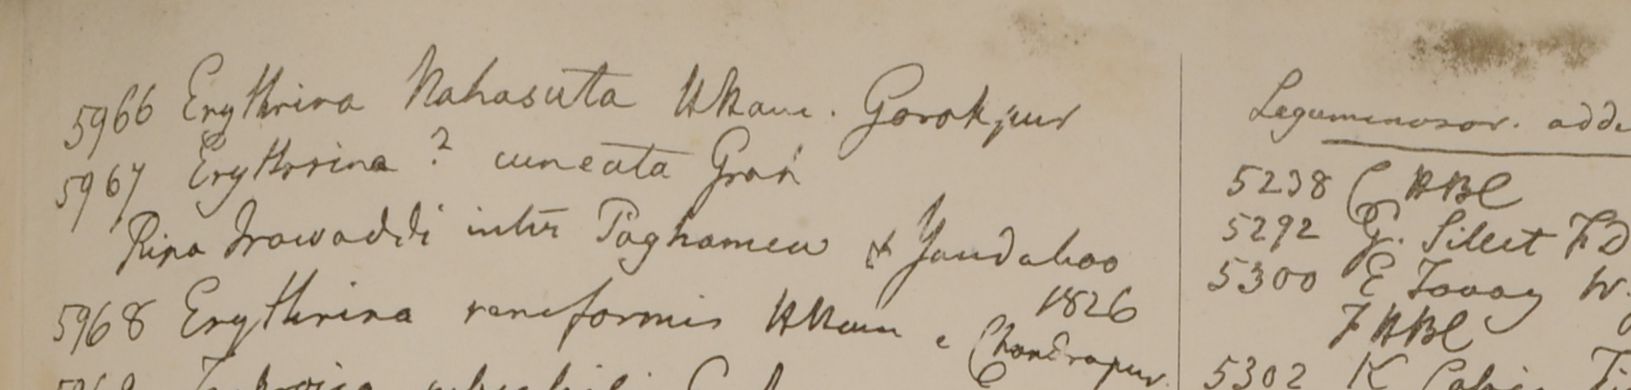 5966 Erythrina Nahasuta HHam. Gorokpur
5967 Erythrina ? cuneata Grah
Ripa Irawaddi inter Paghamew & Yandaboo
1826
5968 Erythrina reniformis HHam e Chondrapur.
5969
Leguminosar. adde
5238 C HBC
5292 G. Sillet FD
5300 E Tavoy W.
F HBC
5302 K